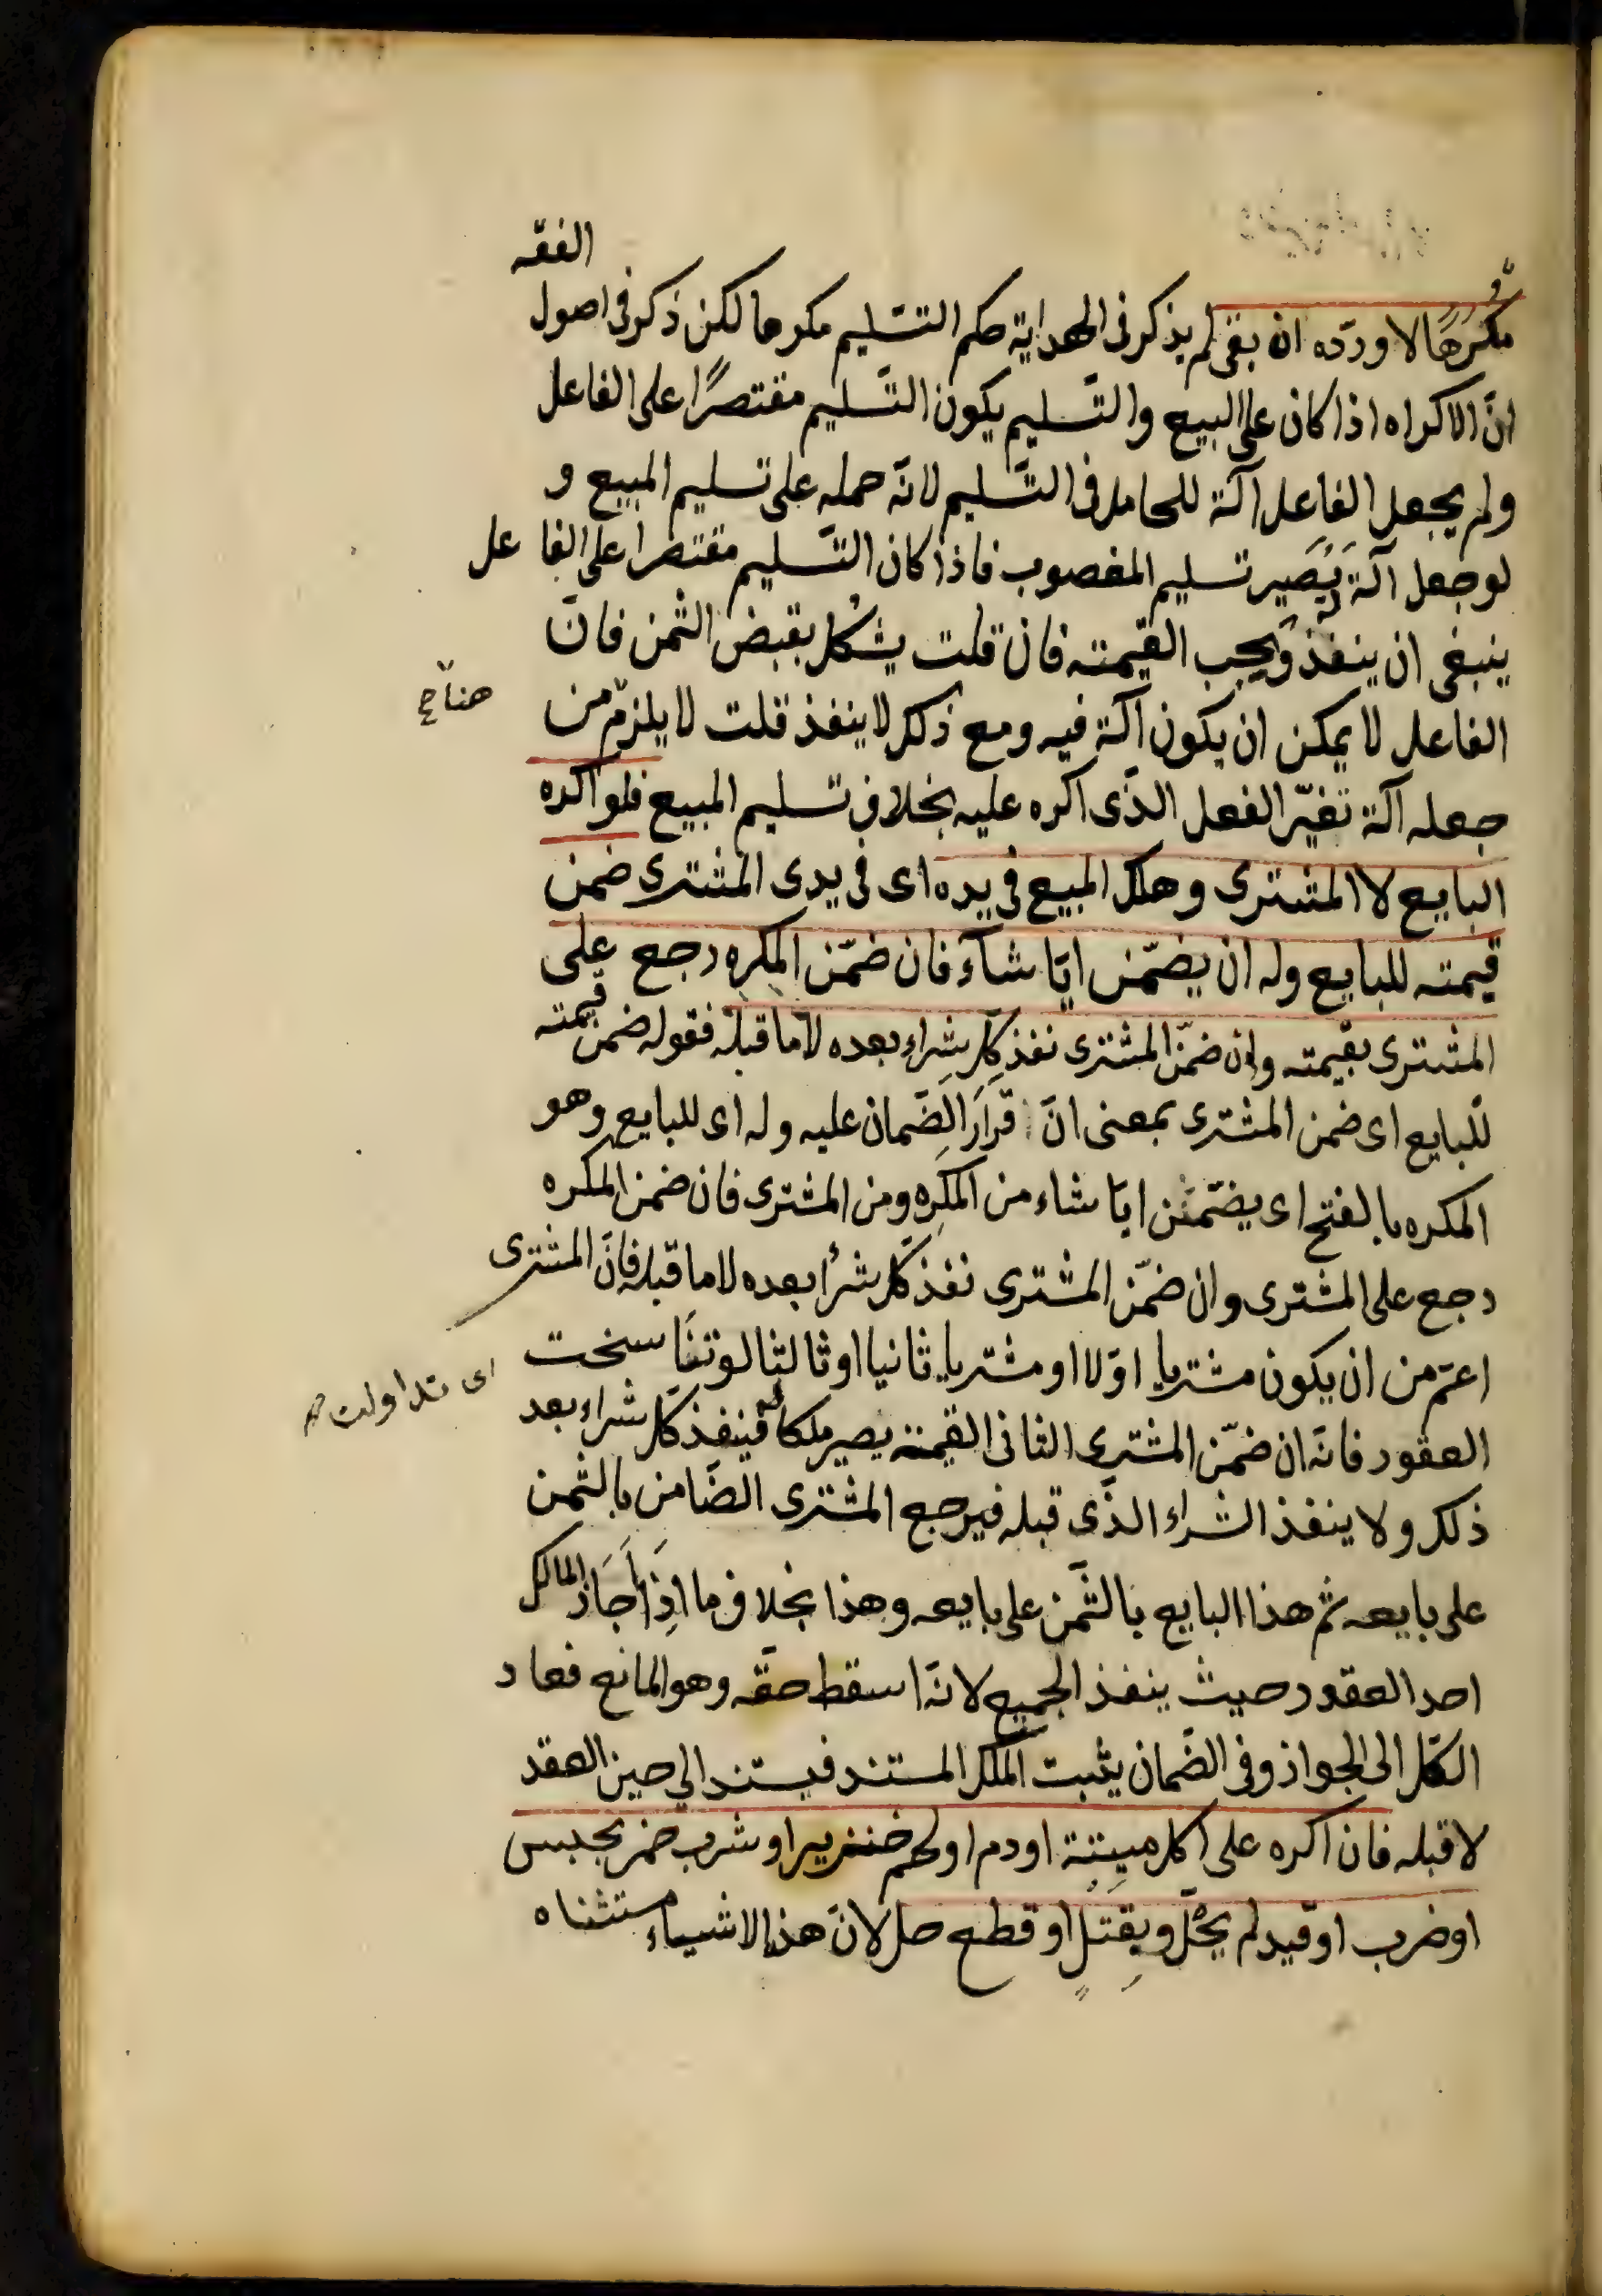 مكرهًا لا وردّه ان بقى لم يذكر فى الهداية حكم التسّليم مكرها لكن ذكر فى اصول الفقه
انّ الاكراه اذا كان على البيع والتّسليم يكون التّسليم مقتصرًا على الفاعل
ولم يجعل الفاعل آلة للحامل فى التّسليم لانّه حمله على تسليم المبيع و
لو جعل آلة يَصير تسليم المغصوب فاذا كان التّسليم مقتصرا على الفاعل
ينبغى ان ينفذ ويجب القيمته فان قلت يشكل بقبض الثمن فانّ
الفاعل لا يمكن ان يكون آلة فيه ومع ذلك لا ينفذ قلت لا يلزم من
هنا ح
جعله آلة تغيّر الفعل الذّى اكره عليه بخلاف تسليم المبيع فلو اكره
البايع لا المشترى وهلك المبيع فى يده اى فى يدى المشترى ضمن
قيمته للبايع وله ان يضمّن ايّا شآء فان ضمّن المكره رجع على
المشترى بقيمته وان ضمّن المشترى نفذ كلّ شراء بعده لا ما قبله فقوله ضمن قيمته
للبايع اى ضمن المشترى بمعنى انّ قرارَ الضّمان عليه وله اى للبايع وهو
المكره بالفتح اى يضمّن ايّا شاء من المكرِه ومن المشترى فان ضمن المكره
رجع على المشترى وان ضمّن المشترى نفذ كل شرأ بعده لا ما قبله فانّ المشترى
اعمّ من ان يكون مشتريا اوّلا او مشتريا ثانيا او ثالثا لو تناسخت
اى تداولت
العقود فانّه ان ضمّن المشترى الثانى القيمة يصير ملكا له فينفذ كل شراء بعد
ذلك ولا ينفذ الشراء الذّى قبله فيرجع المشترى الضّامن بالثمن
على بايعه ثم هذا البايع بالثّمن على بايعه وهذا بخلاف ما اذا اَجَاز المالك
احد العقود حيث ينفذ الجميع لانّه اسقط حقّه وهو المانع فعاد
الكّل الى الجواز وفى الضّمان يثبت الملك المستند فيستند الى حين العقد
لا قبله فان اكره على اكل ميتة او دم او لحم خنزير او شرب خمر بحبس
او ضرب او قيد لم يحلّ وبقتلٍ او قطع حل لانّ هذه الاشياء مستثناه